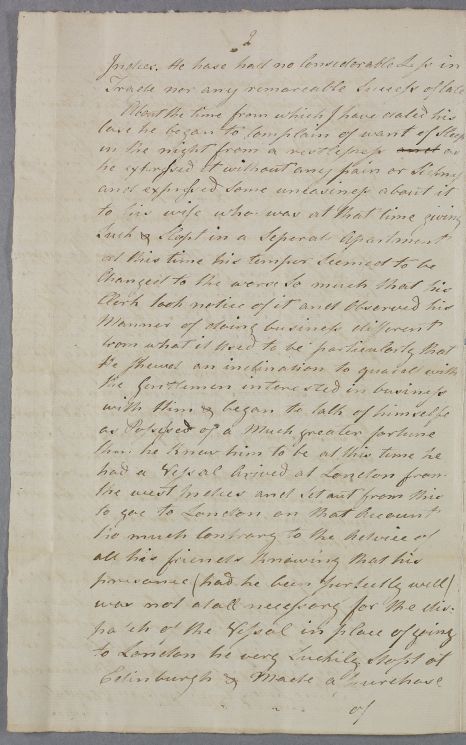 2
Indies. He hase had no Considerable Loss in
Trade nor any remarcable Success of late
About the time from which I have dated his
case he began to Complain of want of Sleep
in the night from a restlesness as
he expressed it without any pain or Sickness
and expressed Some uneasiness about it
to his wife who was at that time giving
Suck & Slept in a Seperate Apartment
at this time his temper Seemed to be
Changed to the worse So much that his
Clerk took notice of it and Observed his
Manner of doing business different
from what it used to be particularly that
he Shewed an inclination to quarel with
the Gentlemen interested in business
with him & began to talk of himselfe
as Possesed of a Much greater fortune
than he knew him to be at this time he
had a Vessal arived at London from
the west Indies and Set out from this
to goe to London on that Account
tho much Contrary to the Advice of
all his friends knowing that his
presance (had he been perfectly well)
was not atall necessary for the dis-
patch of the Vessal in place of going
to London he very Luckily Stopt at
Edinburgh & Made a purchase
of